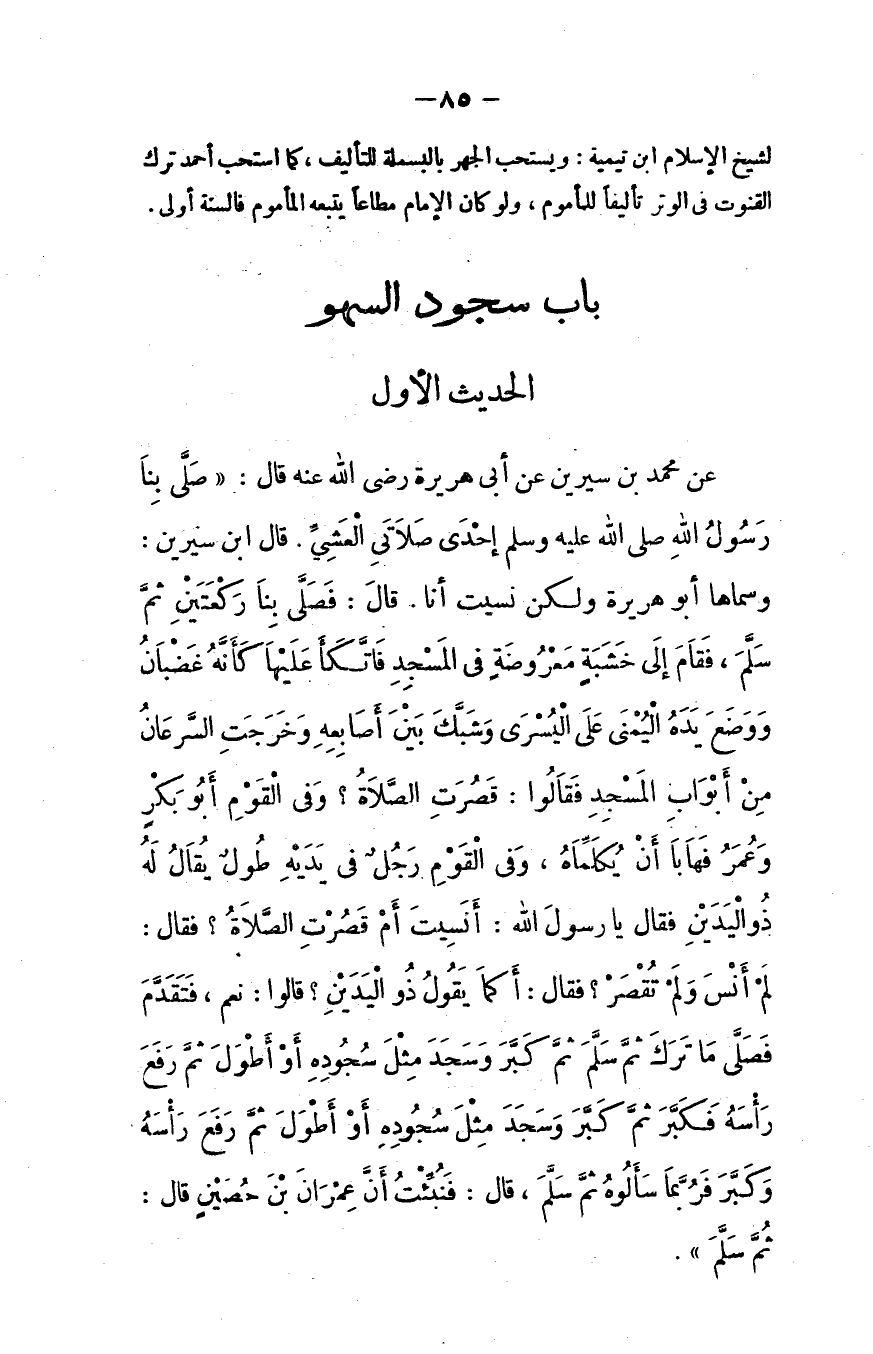 — ٨٥ —
لشيخ الإسلام ابن تيمية : ويستحب الجهر بالبسملة للتأليف ، كما استحب أحمد ترك
القنوت فى الوتر تأليفاً للمأموم ، ولو كان الإمام مطاعاً يتبعه المأموم فالسنة أولى .
باب سجود السهو
الحديث الأول
عن محمد بن سيرين عن أبى هريرة رضى الله عنه قال : « صَلَّى بِنَا
رَسُولُ اللهِ صلى الله عليه وسلم إحْدَى صَلَاتَيِ الْعَشِيِّ . قال ابن سيرين :
وسماها أبو هريرة ولكن نسيت أنا . قالَ : فَصَلَّى بِنَا رَكْعَتَيْنِ ثُمَّ
سَلَّمَ ، فَقَامَ إلَى خَشَبَةٍ مَعْرُوضَةٍ فى المَسْجِدِ فَاتَّكَأَ عَلَيْهَا كَأَنَّهُ غَضْبَانُ
وَوَضَعَ يَدَهُ الْيُمْنَى عَلَى الْيُسْرَى وَشَبَّكَ بَيْنَ أَصَابِعِهِ وَخَرَجَتِ السَّرعَانُ
مِنْ أَبْوَابِ المَسْجِدِ فَقَالُوا : قَصُرَتِ الصَّلَاةُ ؟ وَفى الْقَوْمِ أَبُو بَكْرٍ
وَعُمَرُ فَهَابَا أَنْ يُكَلِّمَاهُ ، وَفى الْقَوْمِ رَجُلٌ فى يَدَيْهِ طُولٌ يُقَالُ لَهُ
ذُو الْيَدَيْنِ فقال يا رسولَ الله : أَنَسِيتَ أَمْ قَصُرْتِ الصَّلَاةُ ؟ فقال :
لَمْ أَنْسَ وَلَمْ تُقْصَرْ ؟ فقال : أَكَمَا يَقُولُ ذُو الْيَدَيْنِ ؟ قالوا : نعم ، فَتَقَدَّمَ
فَصَلَّى مَا تَرَكَ ثُمَّ سَلَّمَ ثُمَّ كَبَّرَ وَسَجَدَ مِثْلَ سُجُودِهِ أَوْ أَطْوَلَ ثُمَّ رَفَعَ
رَأْسَهُ فَكَبَّرَ ثُمَّ كَبَّرَ وَسَجَدَ مِثْلَ سُجُودِهِ أَوْ أَطْوَلَ ثُمَّ رَفَعَ رَأْسَهُ
وَكَبَّرَ فَرُبَّمَا سَأَلُوهُ ثُمَّ سَلَّمَ ، قال : فَنُبِّئْتُ أَنَّ عِمْرَانَ بْنَ حُصَيْنٍ قال :
ثُمَّ سَلَّمَ » .